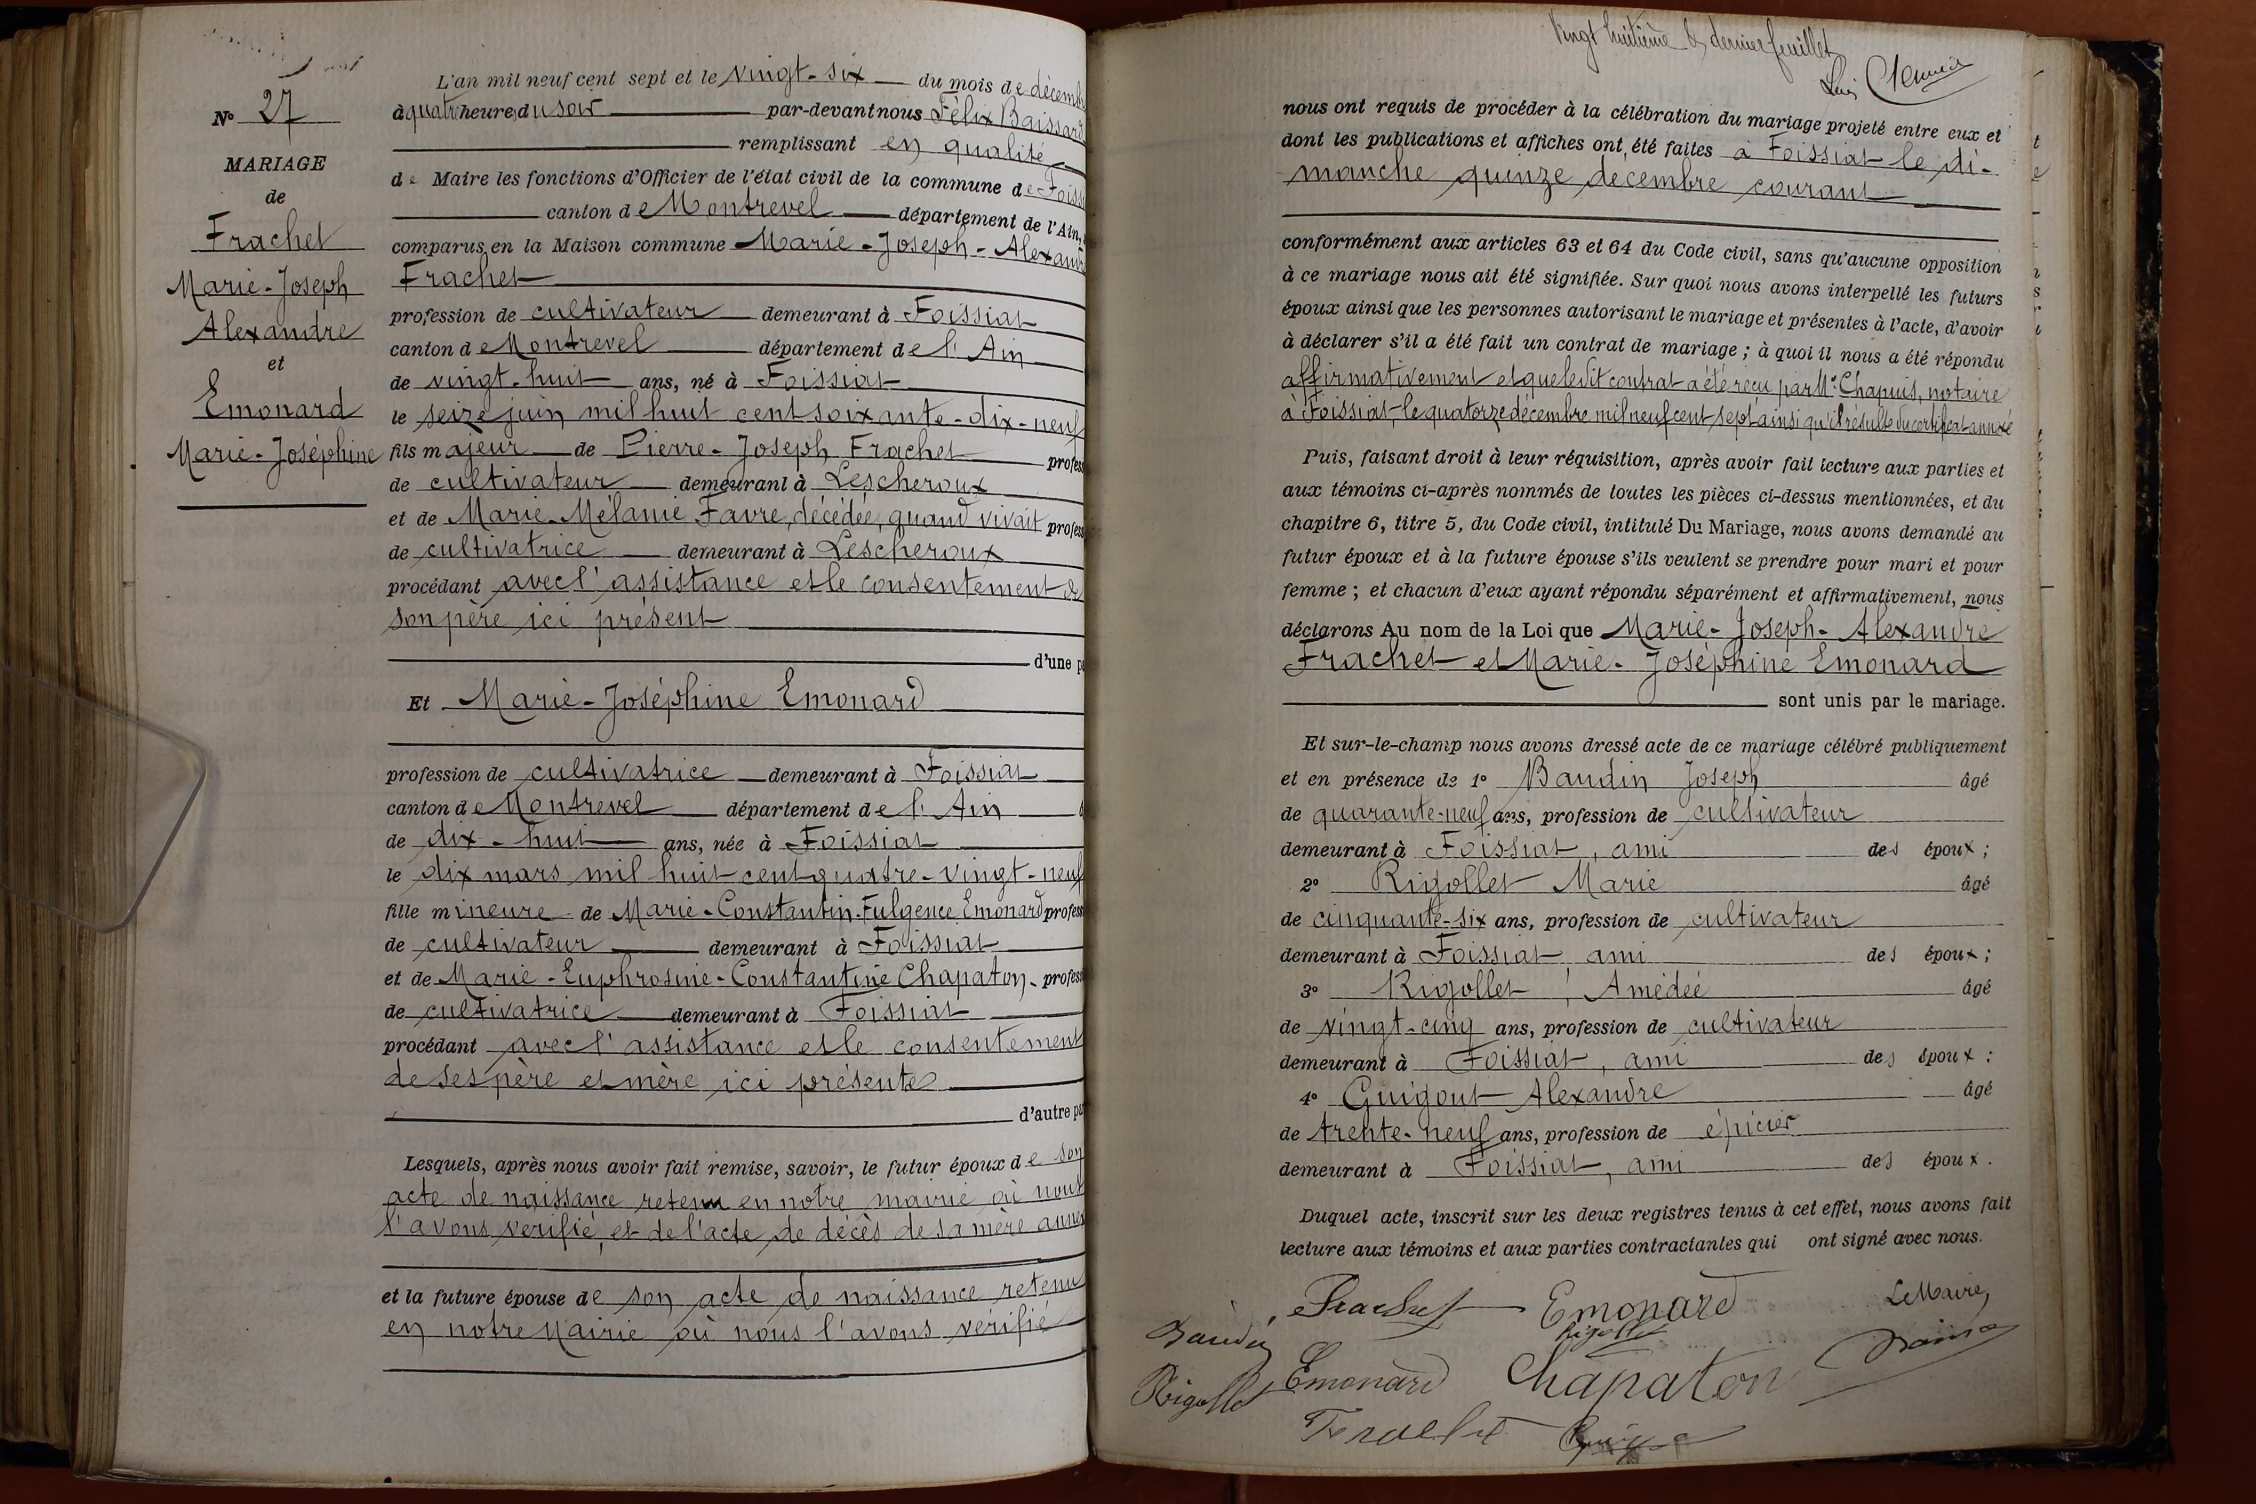 N° 27
MARIAGE
de
Frachet
Marie-Joseph
Alexandre
et
Emonard
Marie-Joséphine
L'an mil neuf cent sept et le vingt-six du mois de décemb
à quatre heures du soir par-devant nous Félix Baissard
remplissant en qualité
de Maire les fonctions d'Officier de l'état civil de la commune de Foiss
canton de Montrevel département de l'Ain,
comparus en la Maison commune Marie-Joseph-Alexand
Frachet
profession de cultivateur demeurant à Foissiat
canton de Montrevel département de l'Ain
de vingt-huit ans, né à Foissiat
le seize juin mil huit cent soixante-dix-neuf
fils majeur de Pierre-Joseph Frachet profess
de cultivateur demeurant à Lescheroux
et de Marie-Mélanie Favre, décédée, quand vivait profess
de cultivatrice demeurant à Lescheroux
procédant avec l'assistance et le consentement de
son père ici présent
d'une pa
Et Marie-Joséphine Emonard
profession de cultivatrice demeurant à Foissiat
canton de Montrevel département de l'Ain
de dix-huit ans, née à Foissiat
le dix mars mil huit cent quatre-vingt-neuf
fille mineure de Marie-Constantin-Fulgence Emonard profess
de cultivateur demeurant à Foissiat
et de Marie-Euphrosine-Constantine Chapaton profess
de cultivatrice demeurant à Foissiat
procédant avec l'assistance et le consentement
de ses père et mère ici présents
d'autre pa
Lesquels, après nous avoir fait remise, savoir, le futur époux de son
acte de naissance retenu en notre mairie où nous
l'avons vérifié, et de l'acte de décès de sa mère annex
et la future épouse de son acte de naissance retenu
en notre Mairie où nous l'avons vérifié
Vingt huitième & dernier feuillet
nous ont requis de procéder à la célébration du mariage projeté entre eux et
dont les publications et affiches ont été faites à Foissiat le di-
manche quinze décembre courant
conformément aux articles 63 et 64 du Code civil, sans qu'aucune opposition
à ce mariage nous ait été signifiée. Sur quoi nous avons interpellé les futurs
époux ainsi que les personnes autorisant le mariage et présentes à l'acte, d'avoir
à déclarer s'il a été fait un contrat de mariage ; à quoi il nous a été répondu
affirmativement et que ledit contrat a été reçu par Me Chapuis, notaire
à Foissiat, le quatorze décembre mil neuf cent sept ainsi qu'il résulte du certificat annexé
Puis, faisant droit à leur réquisition, après avoir fait lecture aux parties et
aux témoins ci-après nommés de toutes les pièces ci-dessus mentionnées, et du
chapitre 6, titre 5, du Code civil, intitulé Du Mariage, nous avons demandé au
futur époux et à la future épouse s'ils veulent se prendre pour mari et pour
femme ; et chacun d'eux ayant répondu séparément et affirmativement, nous
déclarons Au nom de la Loi que Marie-Joseph-Alexandre
Frachet et Marie-Joséphine Emonard
sont unis par le mariage.
Et sur-le-champ nous avons dressé acte de ce mariage célébré publiquement
et en présence de 1° Baudin Joseph âgé
de quarante-neuf ans, profession de cultivateur
demeurant à Foissiat, ami des époux ;
2° Rigollet Marie âgé
de cinquante-six ans, profession de cultivateur
demeurant à Foissiat ami des époux ;
3° Rigollet, Amédée âgé
de vingt-cinq ans, profession de cultivateur
demeurant à Foissiat, ami des époux :
4° Guigout Alexandre âgé
de trente-neuf ans, profession de épicier
demeurant à Foissiat, ami des époux.
Duquel acte, inscrit sur les deux registres tenus à cet effet, nous avons fait
lecture aux témoins et aux parties contractantes qui ont signé avec nous.
Frachet Emonard Le Maire,
Baudin Rigollet
Rigollet Emonard Chapaton
Frachet